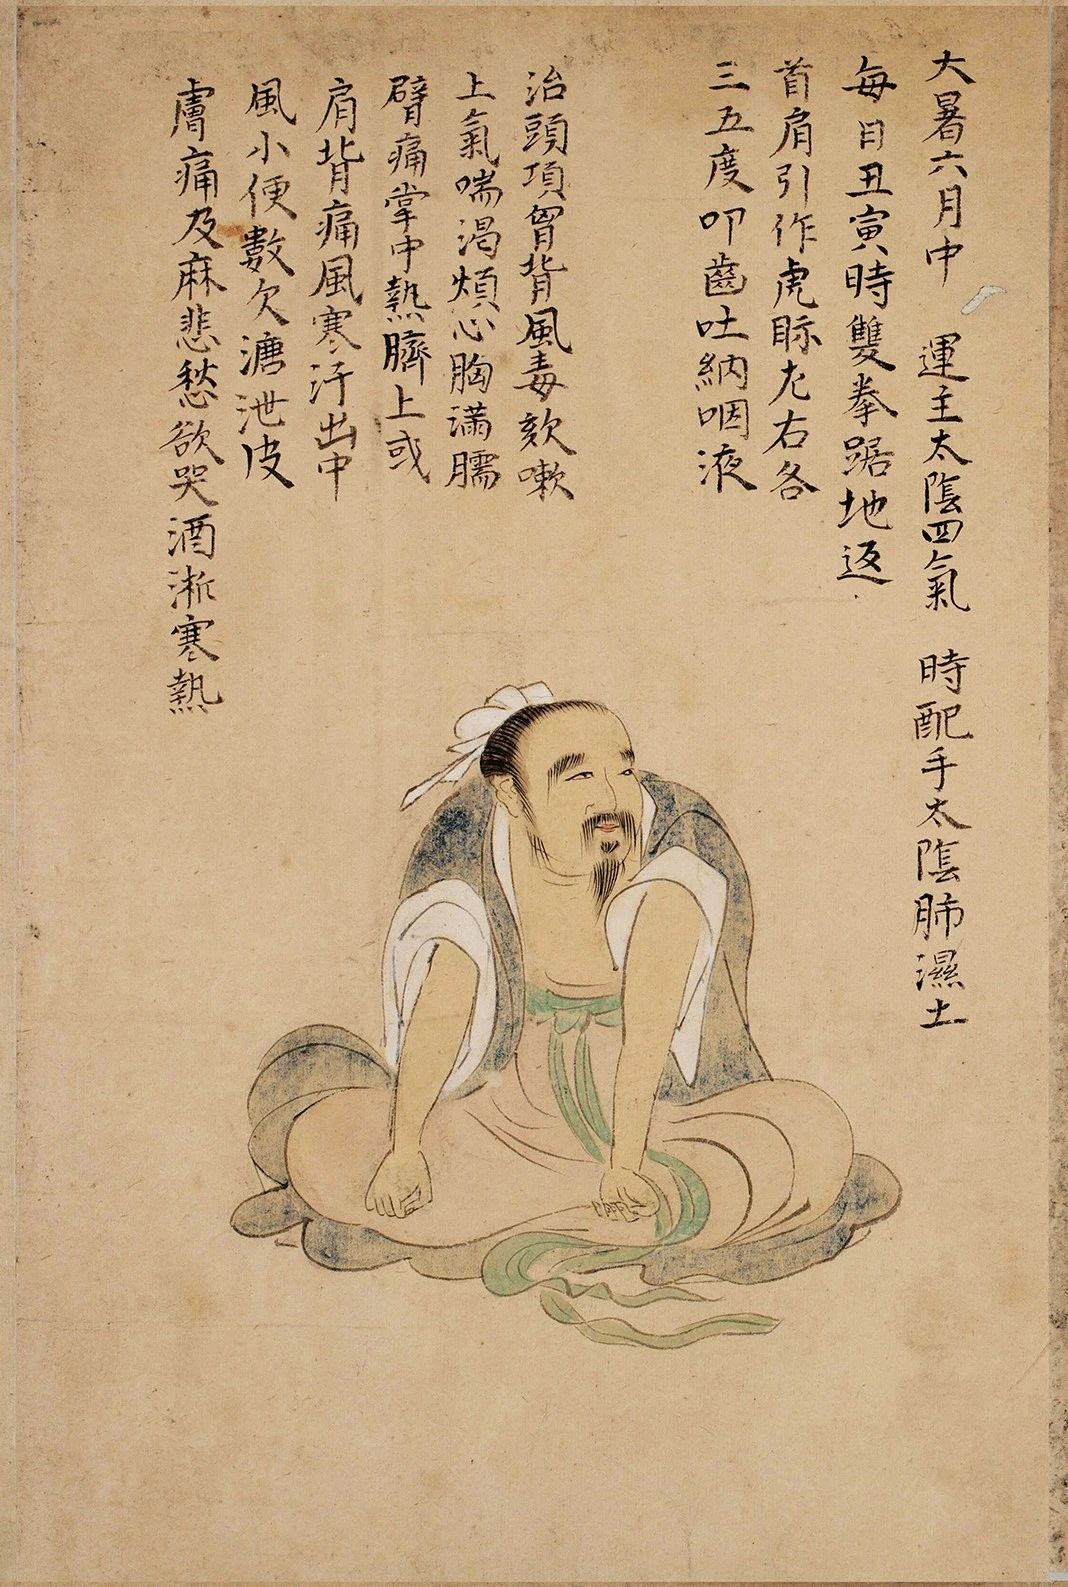 大暑六月中 運主太陰四氣 時配手太陰肺濕土
每日丑寅時雙拳踞地返
首肩引作虎视左右各
三五度叩齒吐納咽液
治頭項胷背風毒欬嗽
上氣喘渴煩心胸滿臑
臂痛掌中熱臍上或
肩背痛風寒汗出中
風小便數欠溏泄皮
膚痛及麻悲愁欲哭酒淅寒熱